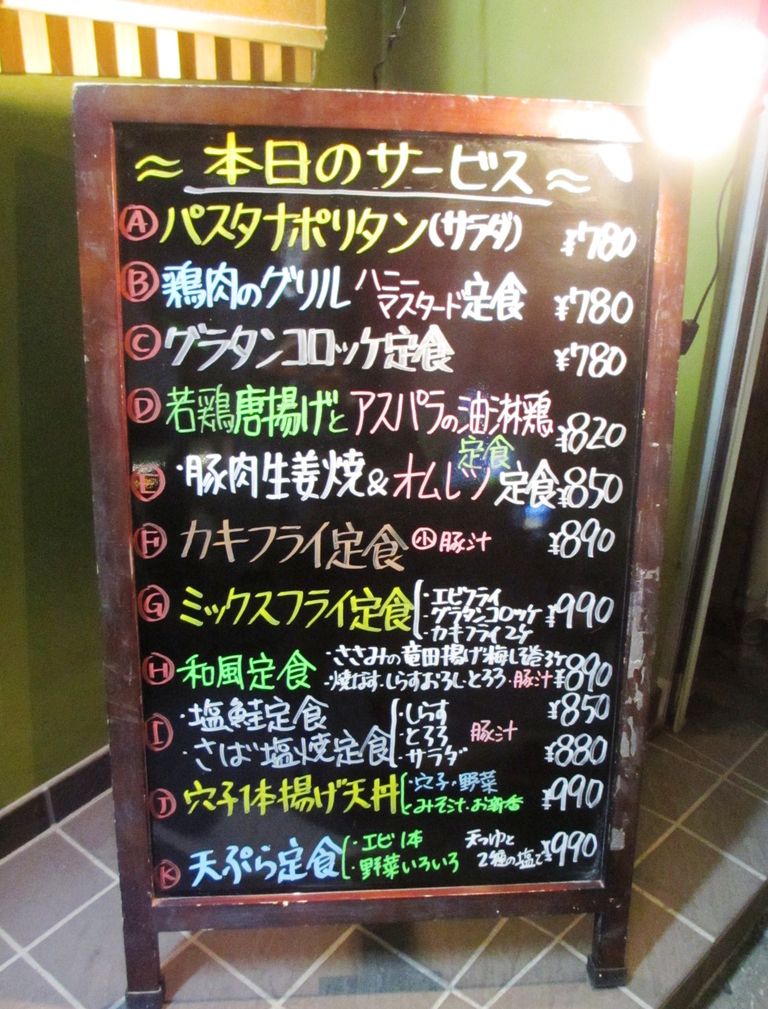 ≈ 本日のサービス ≈
Ⓐ パスタナポリタン(サラダ) ¥780
Ⓑ 鶏肉のグリル ハニーマスタード定食 ¥780
Ⓒ グラタンコロッケ定食 ¥780
Ⓓ 若鶏唐揚げとアスパラの油淋鶏定食 ¥820
Ⓔ ・豚肉生姜焼&オムレツ定食 ¥850
Ⓕ カキフライ定食 ㊙小 豚汁 ¥890
Ⓖ ミックスフライ定食 ・エビフライ ¥990
・グラタンコロッケ
・カキフライ2ケ
Ⓗ 和風定食 ・ささみの竜田揚げ梅しそ巻3ケ ¥890
・焼なす・しらすおろし・とろろ・豚汁
Ⓘ ・塩鮭定食 ・しらす ¥850
・とろろ 豚汁
・さば塩焼定食 ・サラダ ¥880
Ⓙ 穴子1本揚げ天丼 ・穴子・野菜 ¥990
とみそ汁・お新香
Ⓚ 天ぷら定食 ・エビ1本 天つゆと ¥990
・野菜いろいろ 2種の塩で